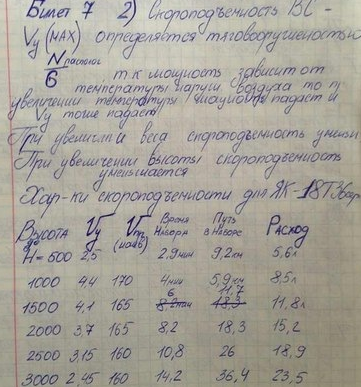 Билет 7 2) Скороподъемность ВС -
Vy (MAX) определяется тяговооруженостью
N располог
6 т к мощность зависит от
температуры наруж воздуха то п
увеличении температуры падает и
Vy тоже падает
При увеличи веса скороподъемность уменьш
При увеличении высоты скороподъемность
уменьшается
Хар-ки скороподъемности для ЯК-18Т36
Высота Vy Vпр (наив) Время Набора Путь в Наборе Расход
до
H=500 2,5 2,9 мин 9,2км 5,6л
1000 4,4 170 4 мин 5,9км 8,5л
6 11,7
1500 4,1 165 8,2 мин 18,3 11,8л
2000 3,7 165 8,2 18,3 15,2
2500 3,15 160 10,8 26 18,9
3000 2,45 160 14,2 36,4 23,5